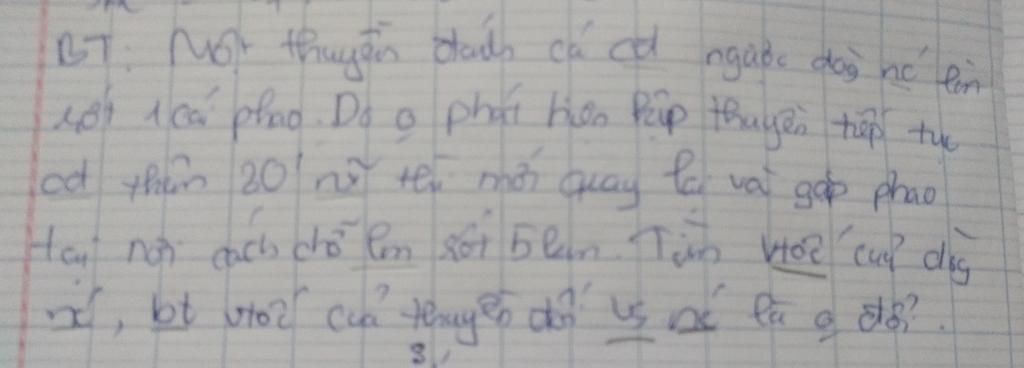 BT: Một thuyền đánh cá cđ ngược dòg nc' làm
rơi 1 cái phao. Do o phát hiện kịp thuyền tiếp tục
cđ thêm 30' nữa thì mới quay lại và gặp phao
tại nơi cách chỗ làm rơi 5km. Tìm vtoc' của dòg
nc', bt vtoc' của thuyền đối vs nc' là o đổi.